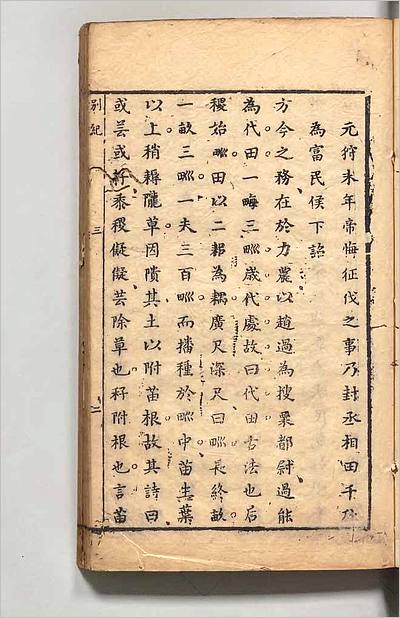 元狩末年帝悔征伐之事乃封丞相田千秋
為富民侯下詔
方今之務在於力農以趙過為搜粟都尉過能
為代田一畮三甽歲代處故曰代田古法也后
稷始甽田以二耜為耦廣尺深尺曰甽長終畝
一畝三甽一夫三百甽而播種於甽中苗生葉
以上稍耨隴草因隤其土以附苗根故其詩曰
或芸或秄黍稷儗儗芸除草也秄附根也言苗
別紀 三 二